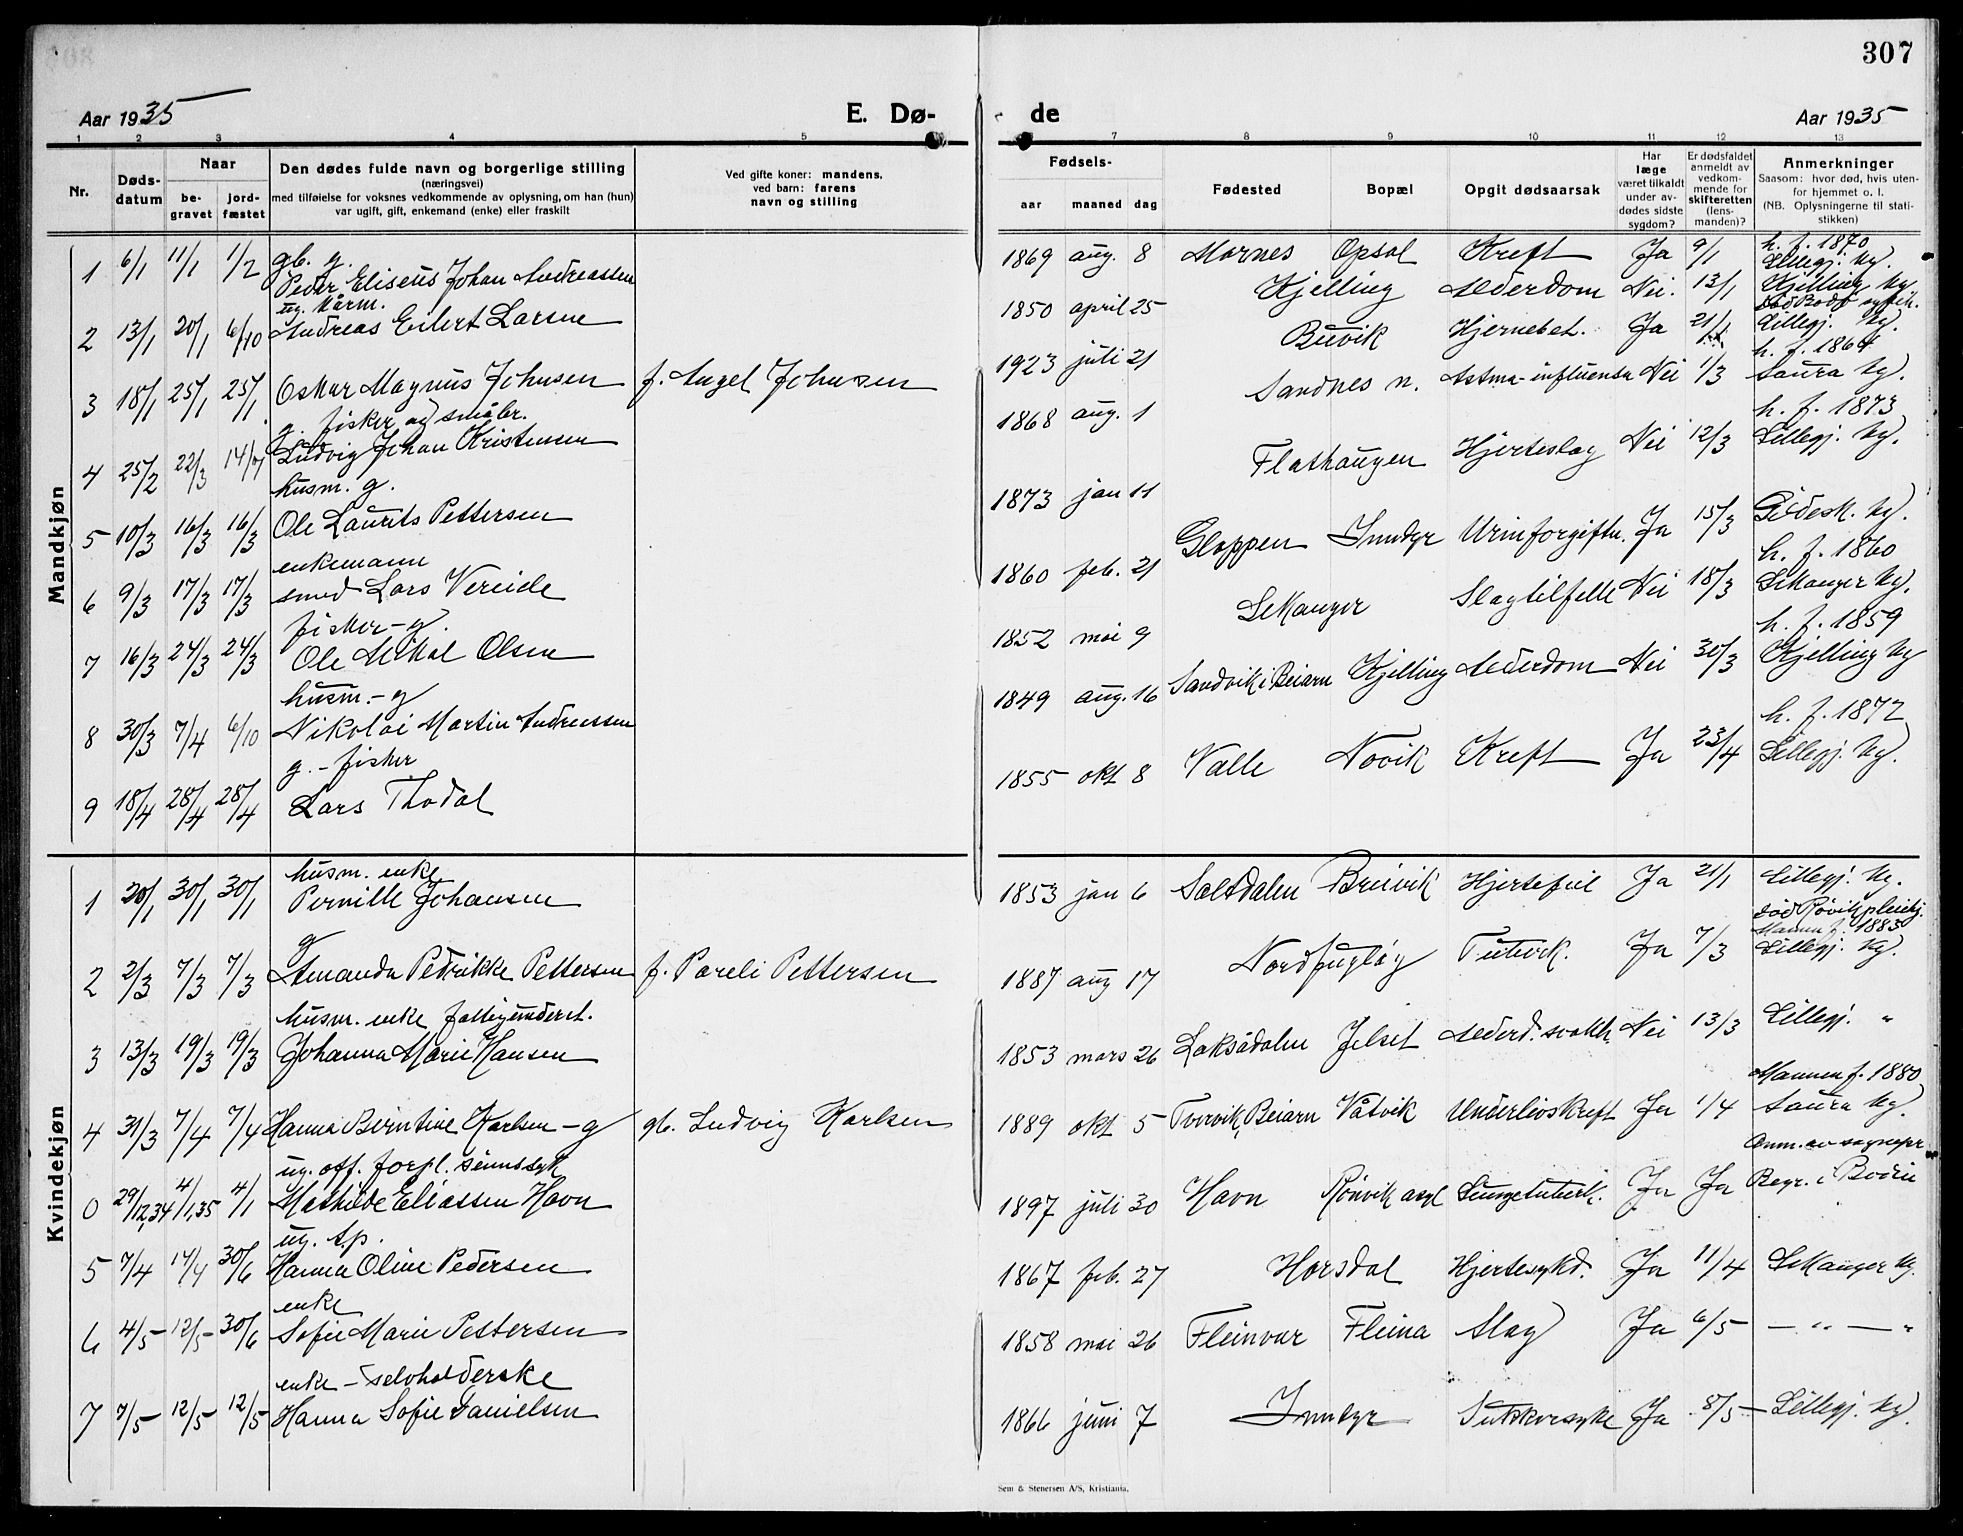 307
Aar 1935
E. Dø-
de
Aar 1935
1 2 3 4 5 7 8 9 10 11 12 13
Nr.
Døds-
datum
Naar
be-
gravet
jord-
fæstet
Den dødes fulde navn og borgerlige stilling
(næringsvei)
med tilføielse for voksnes vedkommende av oplysning, om han (hun)
var ugift, gift, enkemand (enke) eller fraskilt
Ved gifte koner: mandens,
ved barn: farens
navn og stilling
Fødsels-
aar maaned dag
Fødested
Bopæl
Opgit dødsaarsak
Har
læge
været tilkaldt
under av-
dødes sidste
sygdom?
Er dødsfaldet
anmeldt av
vedkom-
mende for
skifteretten
(lens-
manden)?
Anmerkninger
Saasom: hvor død, hvis uten-
for hjemmet o. l.
(NB. Oplysningerne til stati-
stikken)
Mandkjøn
gb. g.
1 6/1 11/1 1/2 Peder Eliseus Johan Andreassen
1869 aug. 8 Mornes Opsal Kreft Ja 9/1 h. f. 1870 Lillegj. kg.
ug. kårm.
2 13/1 20/1 6/10 Andreas Eilert Larsen
1850 april 25 Kjelling Alderdom Nei. 13/1 Kjelling kg.
3 18/1 25/1 25/1 Oskar Magnus Johnsen f. Angel Johnsen
1923 juli 21 Buvik Hjernebet. Ja 21/1 Lillegj. kg.
g. fisker og småbr.
4 25/2 22/3 14/7 Ludvig Johan Kristensen
1868 aug. 1 Sandnes n. Astma-influensa Nei 1/3 h. f. 1864 Saura kg.
husm. g.
5 10/3 16/3 16/3 Ole Laurits Pettersen
1873 jan 11 Flathaugen Hjerteslag Nei 12/3 h. f. 1873 Lillegj. kg.
enkemann
6 9/3 17/3 17/3 smed Lars Vereide
1860 feb. 21 Gloppen Inndyr Urinforgiftn. Ja 15/3 Gildesk. kg.
fisker - g.
7 16/3 24/3 24/3 Ole Mikal Olsen
1852 mai 9 Sekanger Slagtilfelle Nei 18/3 h. f. 1860 Sekanger kg.
husm. - g
8 30/3 7/4 6/10 Nikolai Martin Andreassen
1849 aug. 16 Sandvik i Beiarn Kjelling Alderdom Nei 30/3 h. f. 1859 Kjelling kg
g. - fisker
9 18/4 28/4 28/4 Lars Thodal
1855 okt 8 Valle Novik Kreft Ja 23/4 h. f. 1872 Lillegj. kg.
Kvindekjøn
husm. enke
1 20/1 30/1 30/1 Pernille Johansen
1853 jan 6 Saltdalen Breivik Hjertefeil Ja 21/1 Lillegj. kg.
død Røvik pleiehj.
g
2 2/3 7/3 7/3 Amanda Pedrikke Pettersen f. Pareli Pettersen
1887 aug 17 Nordfugløy Tuberk. Ja 7/3 Mannen f. 1883 Lillegj. kg.
husm. enke fattigunderst.
3 13/3 19/3 19/3 Johanna Marie Hansen
1853 mars 26 Laksådalen Jelset Alderd. svakh. Nei 13/3 Lillegj. "
4 31/3 7/4 7/4 Hanna Berntine Karlsen - g gb. Ludvig Karlsen
1889 okt 5 Tvervik, Beiarn Våtvik Underlivskreft Ja 1/4 Mannen f. 1880 Saura kg.
ug. off. forpl. sinnssyk
0 29/12,34 4/1,35 4/1 Mathilde Eliassen Havn
1897 juli 30 Havn Rønvik asyl Lungetuberk. Ja Ja Anm. av sognepr Begr. i Bodin
ug. A.p.
5 7/4 14/4 30/6 Hanna Oline Pedersen
1867 feb. 27 Horsdal Hjertesykd. Ja 11/4 Sekanger kg.
enke
6 4/5 12/5 30/6 Sofie Marie Pettersen
1858 mai 26 Fleinvær Fleina Slag Ja 6/5 — " — "
enke - selvholderske
7 7/5 12/5 12/5 Hanna Sofie Danielsen
1866 juni 7 Inndyr Sukkersyke Ja 8/5 Lillegj. kg.
Sem & Stenersen A/S, Kristiania.